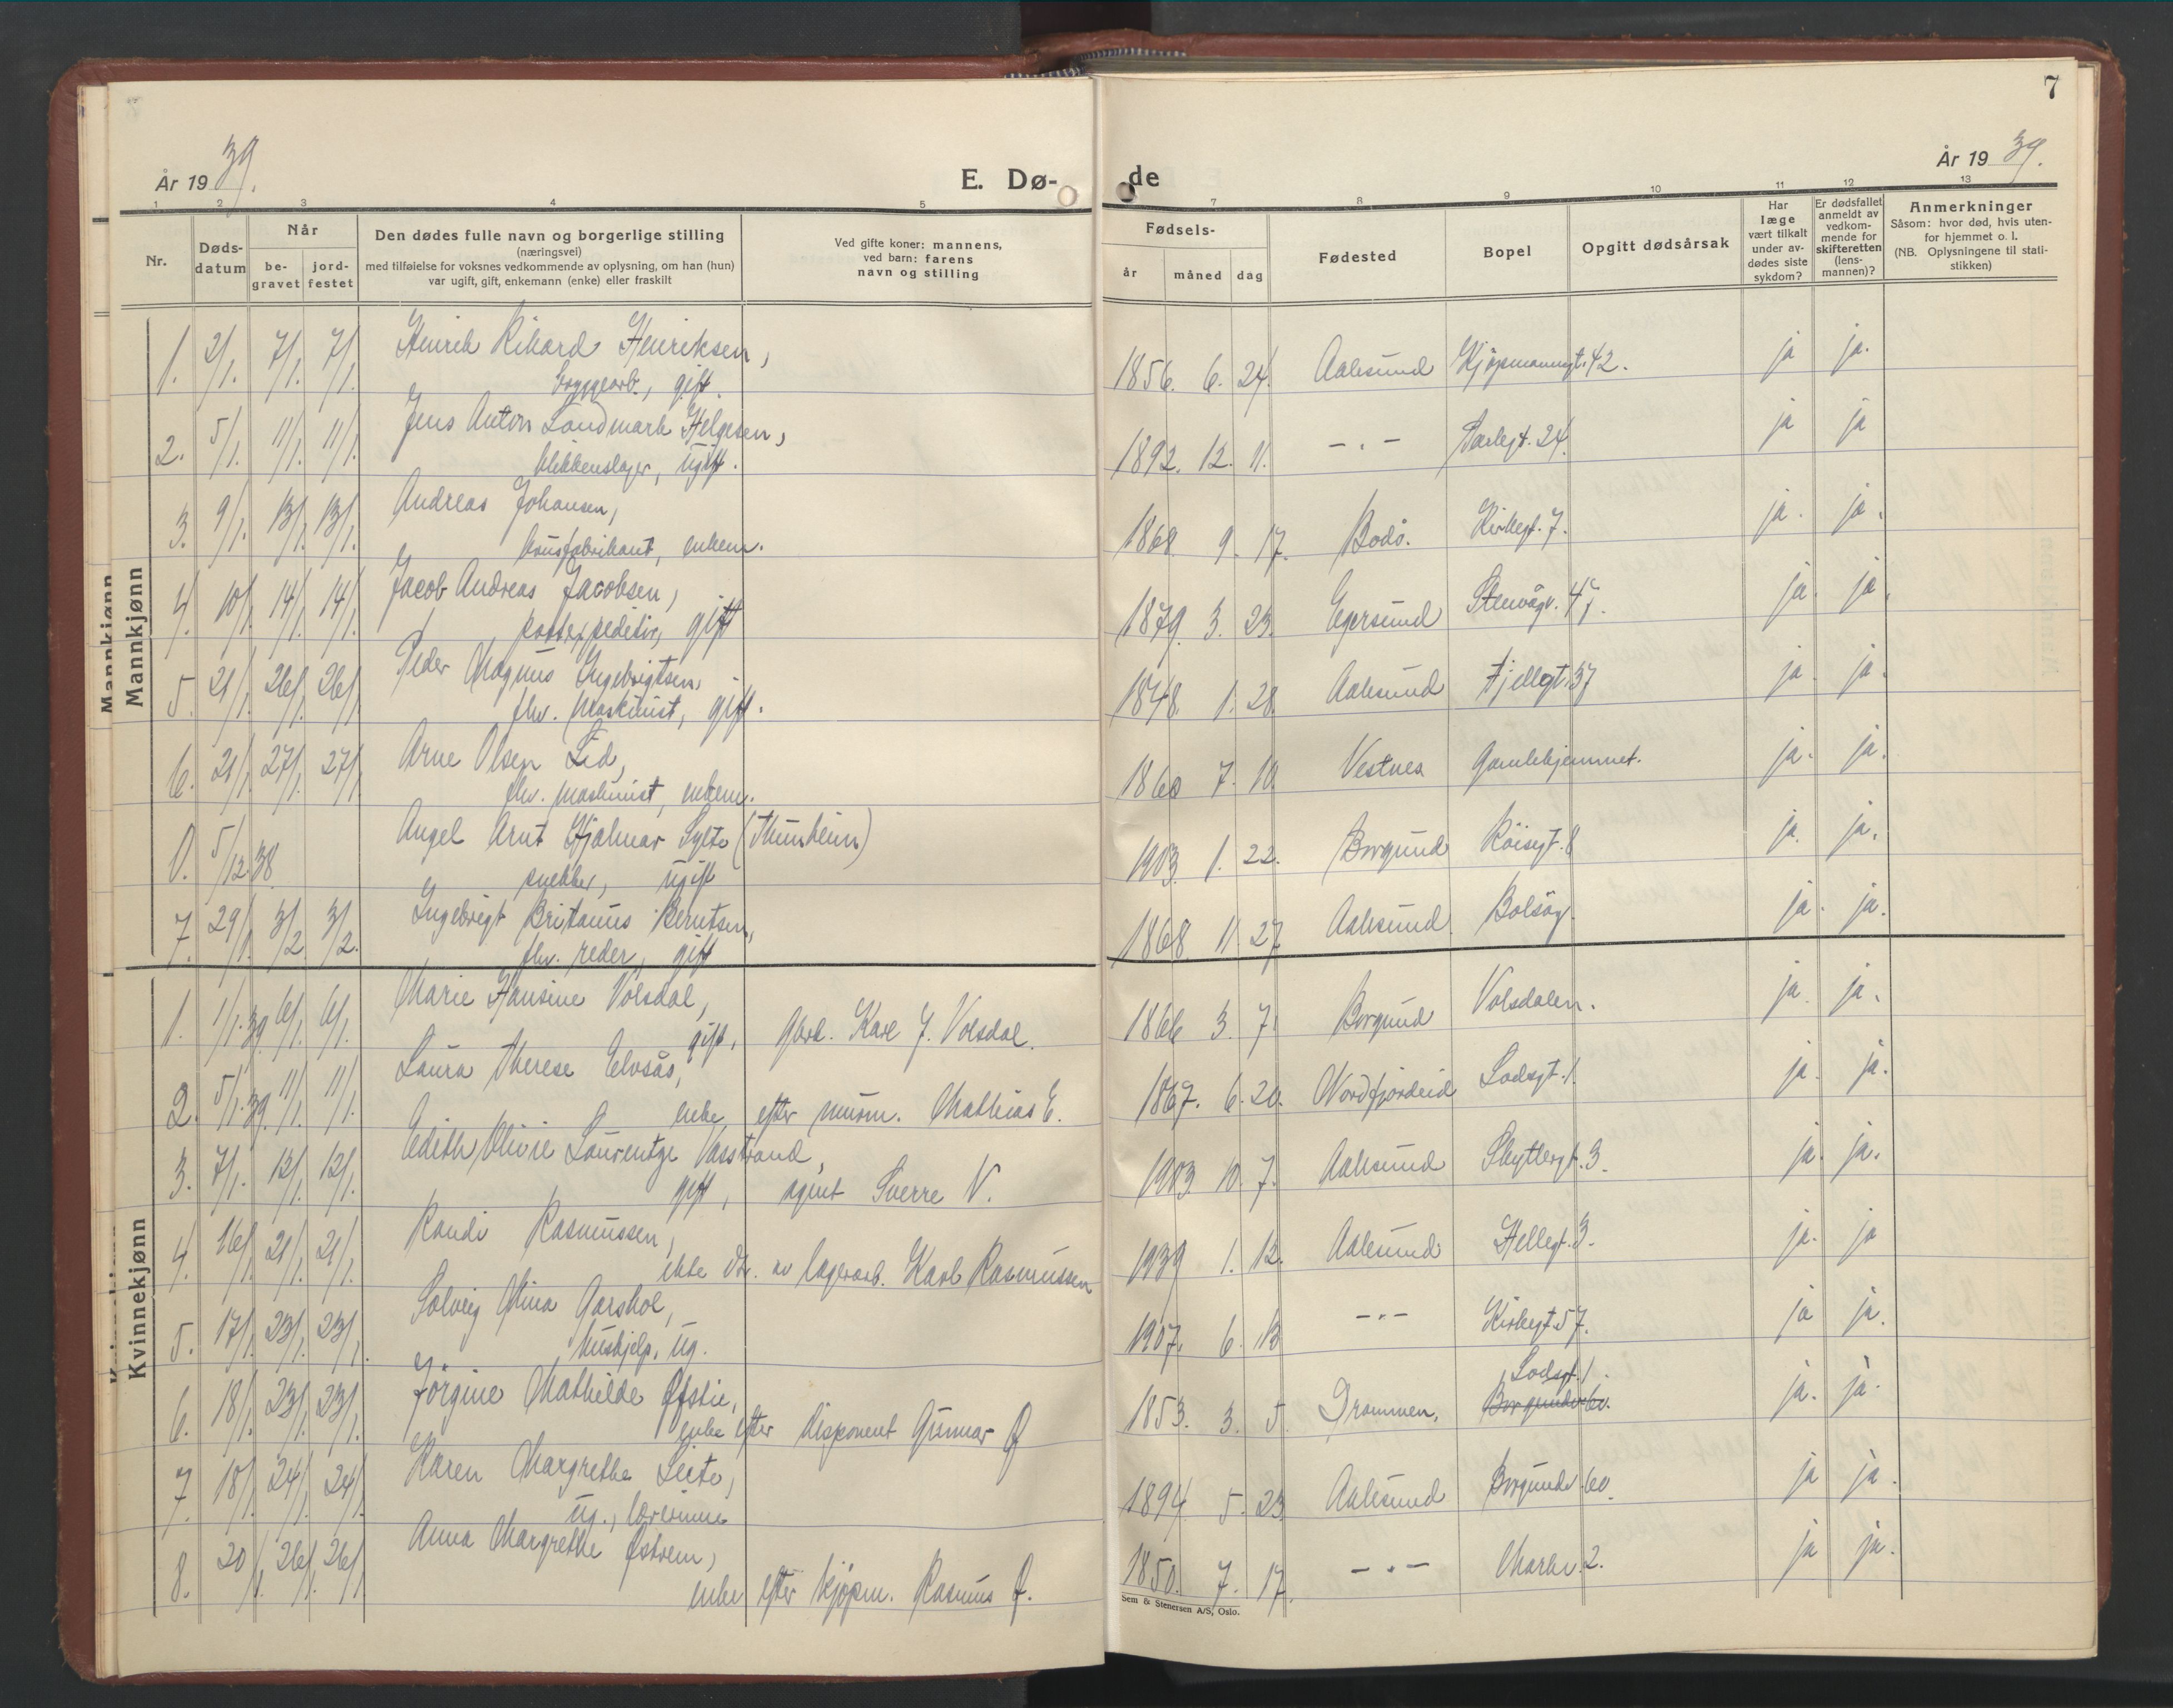 7
År 19 39.
E. Dø-
de
År 19 39.
1 2 3 4 5
7 8 9 10 11 12 13
Nr.
Døds-
datum
Når
be-
gravet
jord-
festet
Den dødes fulle navn og borgerlige stilling
(næringsvei)
med tilføielse for voksnes vedkommende av oplysning, om han (hun)
var ugift, gift, enkemann (enke) eller fraskilt
Ved gifte koner: mannens,
ved barn: farens
navn og stilling
Fødsels-
år måned dag
Fødested
Bopel
Opgitt dødsårsak
Har
læge
vært tilkalt
under av-
dødes siste
sykdom?
Er dødsfallet
anmeldt av
vedkom-
mende for
skifteretten
(lens-
mannen)?
Anmerkninger
Såsom: hvor død, hvis uten-
for hjemmet o. l.
(NB. Oplysningene til stati-
stikken)
Mannkjønn
Mannkjønn
1. 2/1. 7/1. 7/1. Henrik Rikard Henriksen, 1856. 6. 24. Aalesund Kjøpmannsgt. 42. ja ja.
bryggearb., gift.
2. 5/1. 11/1. 11/1. Jens Anton Landmark Helgesen, 1892. 12. 11. -"- 24. ja ja
blikkenslager, ugift.
3. 9/1. 13/1. 13/1. Andreas Johansen, 1868. 9. 17. Bodö. Kirkegt. 7. ja. ja.
enkem.
4. 10/1. 14/1. 14/1. Jacob Andreas Jacobsen, 1879. 3. 23. Egersund Stenvågv. ja. ja.
postexpeditør, gift
5. 21/1. 26/1. 26/1. Peder Magnus Ingebrigtsen, 1848. 1. 28. Aalesund Fjellgt. 37 ja. ja.
fhv. maskinist, gift.
6. 21/1. 27/1. 27/1. Arne Olsen Eid, 1860 7. 10. Vestnes Gamlehjemmet. ja. ja.
fhv. maskinist, enkem.
0. 5/12. 38. Angel Arnt Hjalmar Sylte (Thunheim) 1903. 1. 22. Borgund Röisgt. 8 ja. ja.
snekker, ugift
7. 29/1. 3/2. 3/2. Ingebrigt Britanus Berntsen, 1868 11. 27. Aalesund ja. ja.
fhv. reder, gift
Kvinnekjønn
1. 1/1. 39. 6/1. 6/1. Marie Hansine Volsdal, 1866 3. 7. Borgund Volsdalen. ja. ja.
gift, Karl J. Volsdal.
2. 5/1. 39. 11/1. 11/1. Laura Therese Elvsås, 1867. 6. 20. Nordfjordeid Lodsgt. 1. ja. ja.
enke efter murm. Mathias E.
3. 7/1. 12/1. 12/1. Edith Olivie Laurentze Vasstrand, 1903. 10. 7. Aalesund Skyttergt. 3. ja. ja.
gift, agent Sverre V.
4. 16/1. 21/1. 21/1. Randi Rasmussen, 1939 1. 12. Aalesund Hellegt. 3. ja. ja
ikke av lagerarb. Karl Rasmussen
5. 17/1. 23/1. 23/1. Solveig Mina Aarskol, 1907. 6. 13 -"- Kirkegt. 57. ja ja.
hushjelp, ug.
6. 18/1. 23/1. 23/1. Jörgine Mathilde Øfstie, 1853. 3. 5. Drammen, Lodsgt. 1. ja. ja.
Borgundv. 60.
enke efter disponent Gunnar Ø
7. 18/1. 24/1. 24/1. Karen Margrethe Seite, 1894 5. 23. Aalesund Borgundv 60. ja ja.
ug., lærerinne
8. 20/1. 26/1. 26/1. Anna Margrethe Østrem, 1850. 7. 17. -"- 2. ja ja.
enke efter kjøpm. Rasmus Ø.
Sem & Stenersen A/S, Oslo.